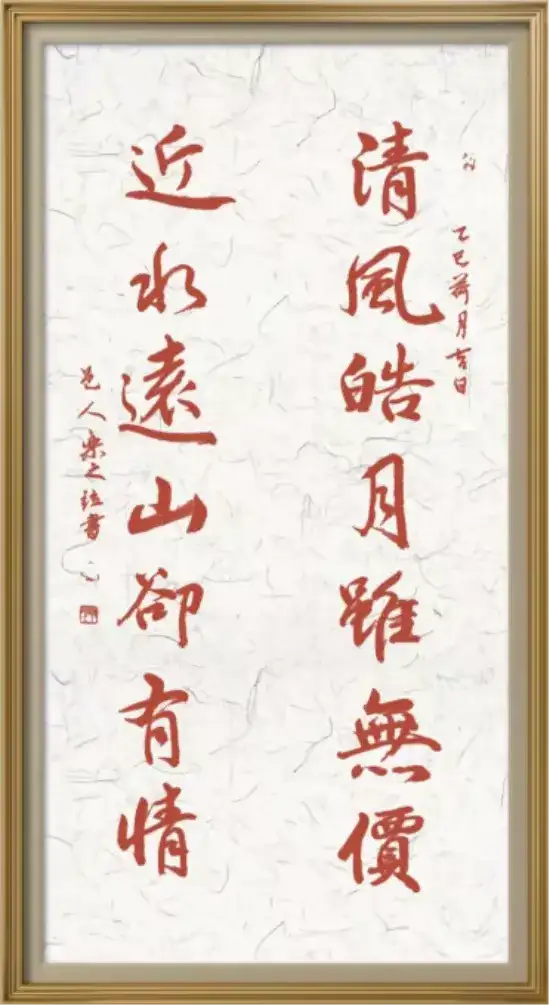 乙巳荷月吉日
清風皓月雖無價
近水遠山卻有情
邑人樂之 書